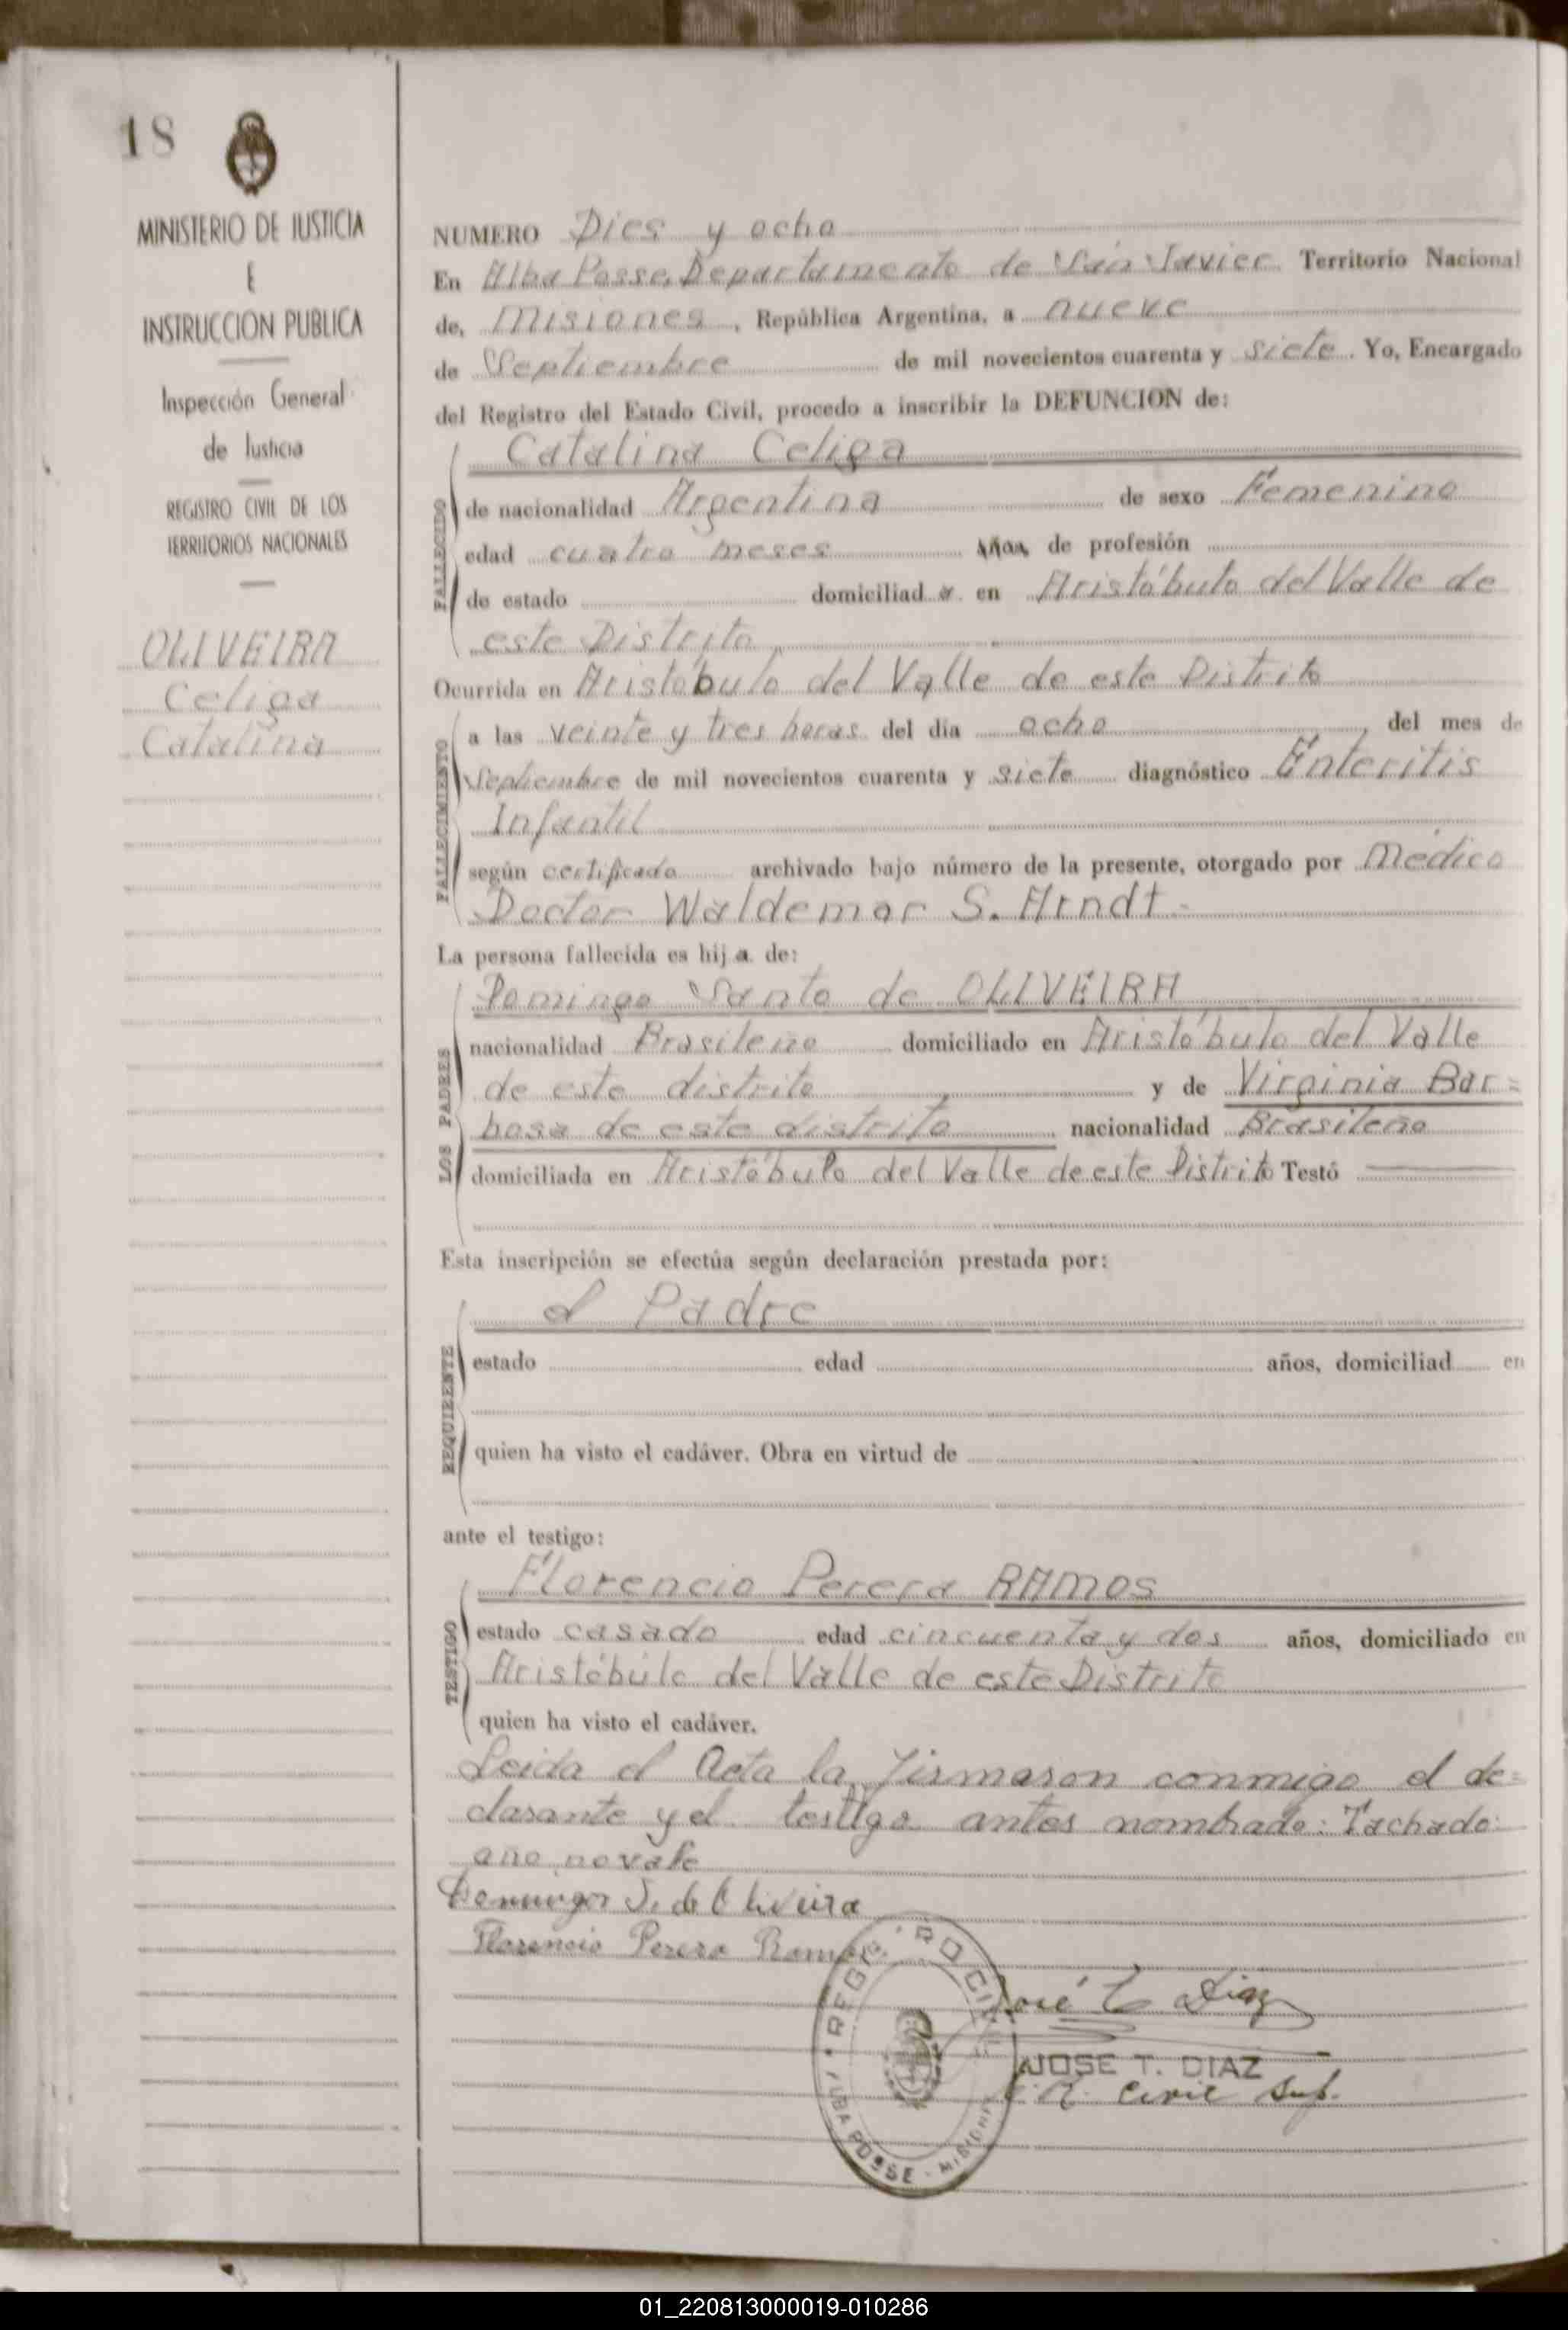 18
MINISTERIO DE JUSTICIA
E
INSTRUCCION PUBLICA
Inspección General
de Justicia
REGISTRO CIVIL DE LOS
TERRITORIOS NACIONALES
OLIVEIRA
Celiga
Catalina
NUMERO Dies y ocho
En Alba Posse, Departamento de San Javier Territorio Nacional
de, Misiones, República Argentina, a nueve
de Septiembre de mil novecientos cuarenta y siete. Yo, Encargado
del Registro del Estado Civil, procedo a inscribir la DEFUNCION de:
FALLECIDO
Catalina Celiga
de nacionalidad Argentina de sexo Femenino
edad cuatro meses años, de profesión
de estado domiciliad a en Aristóbulo del Valle de
este Distrito
Ocurrida en Aristóbulo del Valle de este Distrito
FALLECIMIENTO
a las veinte y tres horas del día ocho del mes de
Septiembre de mil novecientos cuarenta y siete diagnóstico Enteritis
Infantil
según certificado archivado bajo número de la presente, otorgado por Médico
Doctor Waldemar S. Arndt.-
La persona fallecida es hij a de:
LOS PADRES
Domingo Santo de OLIVEIRA
nacionalidad Brasileño domiciliado en Aristóbulo del Valle
de este distrito y de Virginia Bar=
bosa de este distrito nacionalidad Brasileño
domiciliada en Aristóbulo del Valle de este Distrito Testó
Esta inscripción se efectúa según declaración prestada por:
REQUIRENTE
el Padre
estado edad años, domiciliad en
quien ha visto el cadáver. Obra en virtud de
ante el testigo:
TESTIGO
Florencio Perera RAMOS
estado casado edad cincuenta y dos años, domiciliado en
Aristóbulo del Valle de este Distrito
quien ha visto el cadáver.
Leida el Acta la firmaron conmigo el de=
clarante y el testigo antes nombrado: Tachado:
año no vale
Domingos S. de Oliveira
Florencio Perera Ramos
REGISTRO CIVIL
ALBA POSSE - MISIONES
José T. Diaz
JOSE T. DIAZ
Civil Sup.
01_220813000019-010286